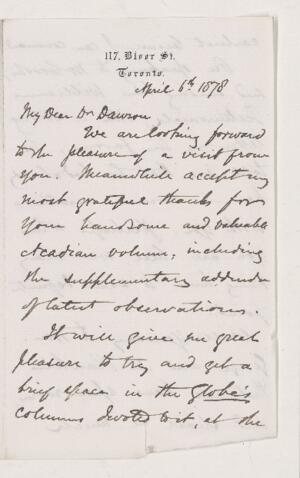 117, Bloor St.
Toronto.
April 6th 1878
My Dear Dr Dawson
We are looking forward
to the pleasure of a visit from
you. Meanwhile accept my
most grateful thanks for
your handsome and valuable
Acadian volume; including
the supplementary addenda
of latest observations.
It will give me great
pleasure to try and get a
brief space in the Globe's
columns devoted to it, at the